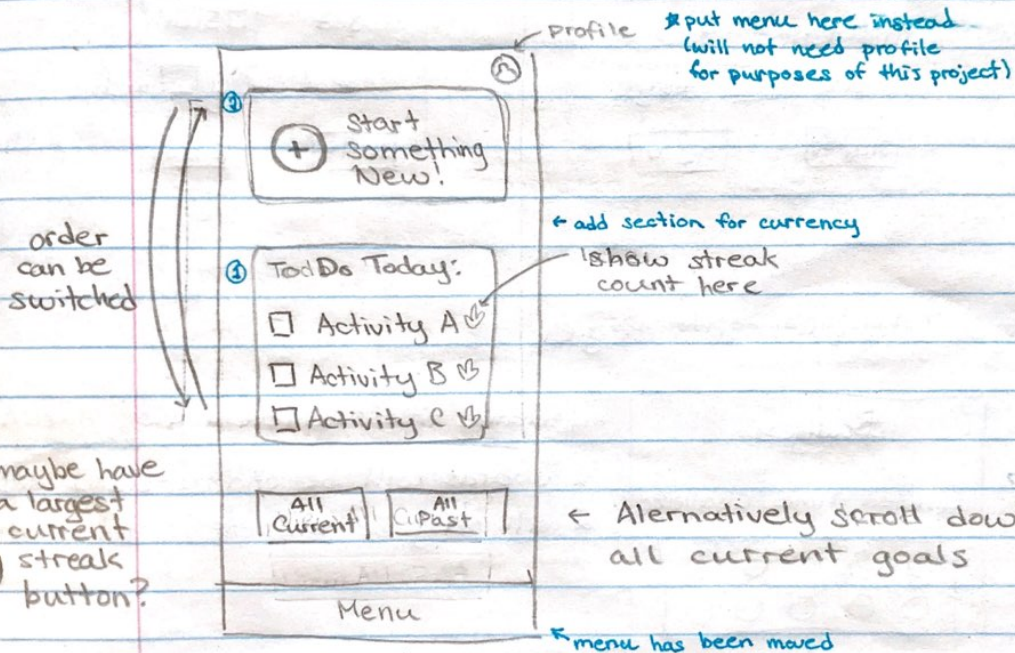 profile
*put menu here instead
(will not need profile
for purposes of this project)
2
+ Start
Something
New!
order
can be
switched
← add section for currency
show streak
count here
1 Tod Do Today:
Activity A
Activity B
Activity C
maybe have
a largest
current
streak
button?
All
Current
All
Past
← Alernatively scroll dow
all current goals
Menu
menu has been moved